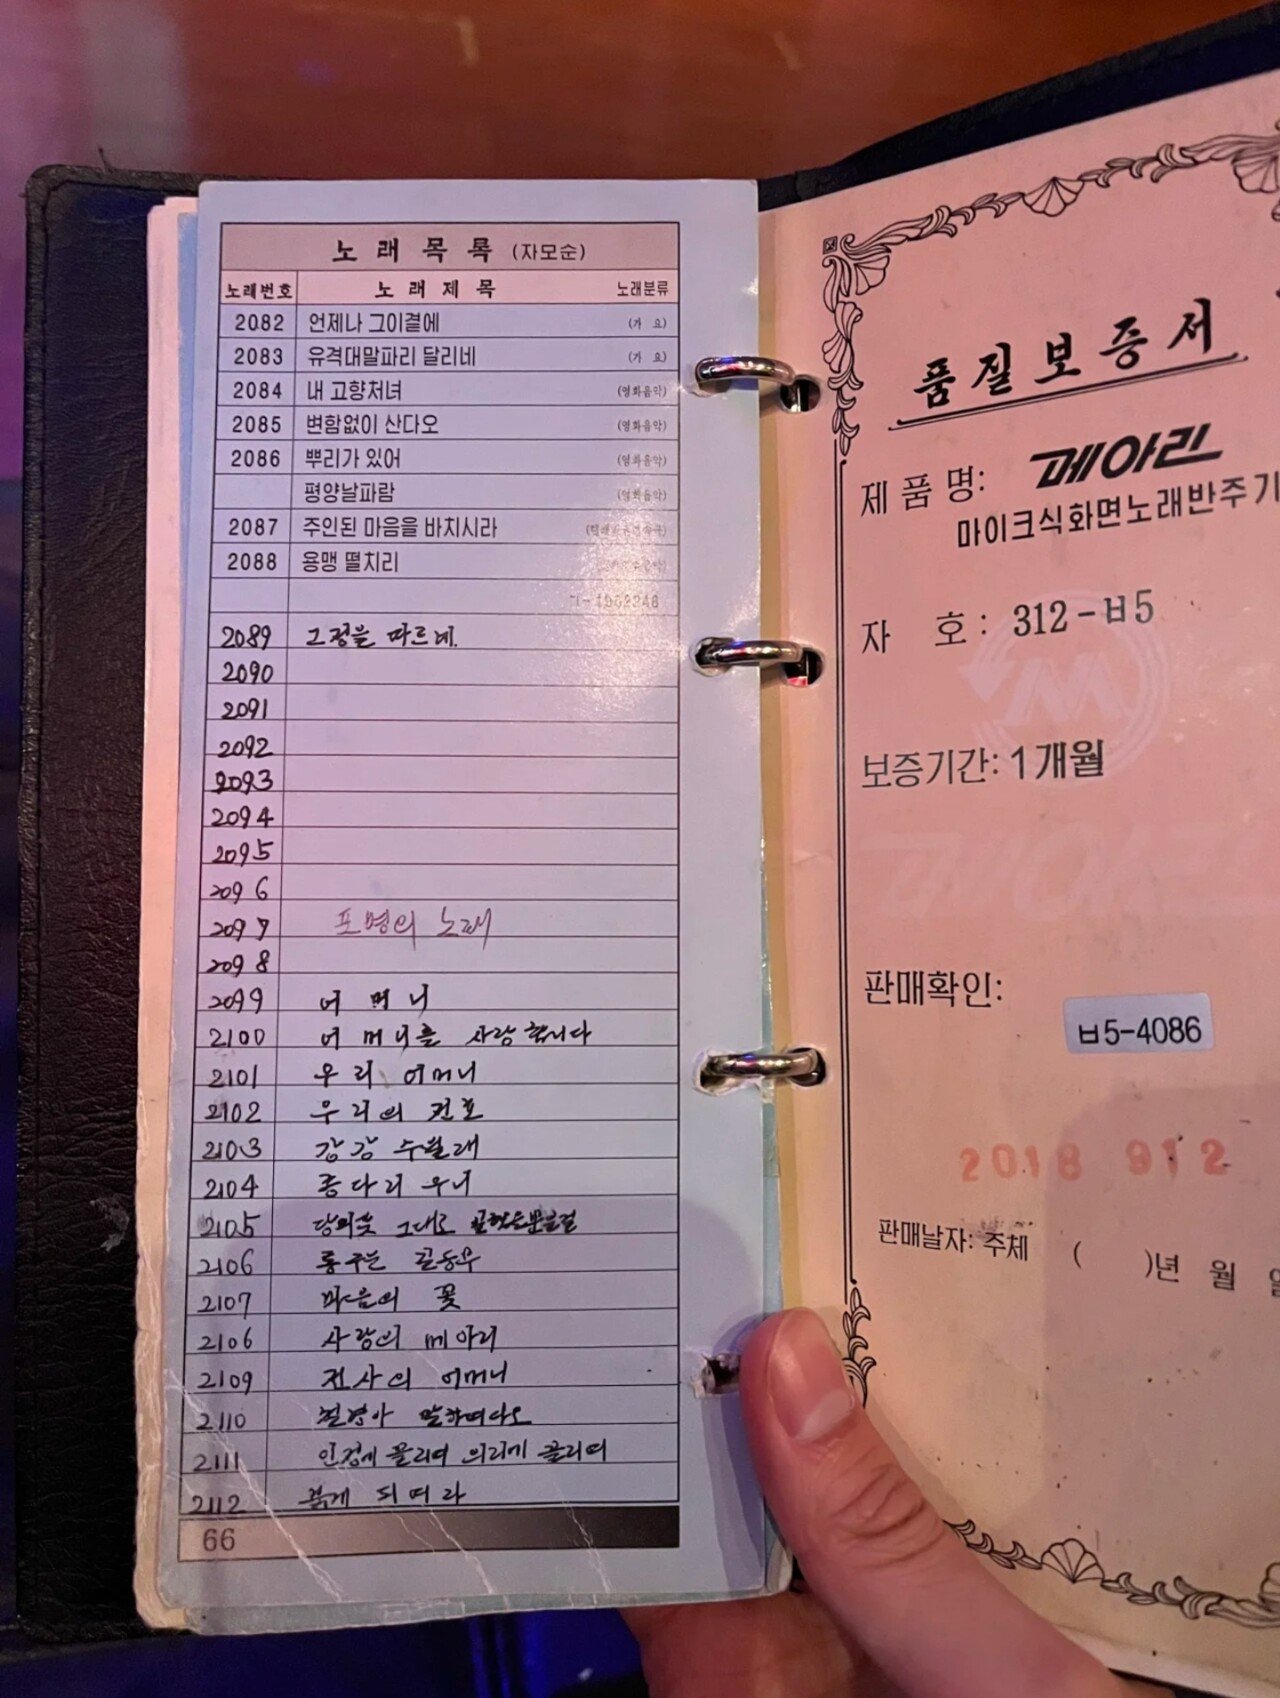 노래목록 (자모순)
노래번호 노래제목 노래분류
2082 언제나 그이곁에 (가요)
2083 유격대말파리 달리네 (가요)
2084 내 고향처녀 (영화음악)
2085 변함없이 산다오 (영화음악)
2086 뿌리가 있어 (영화음악)
평양날파람 (영화음악)
2087 주인된 마음을 바치시라
2088 용맹 떨치리
2089 그정을 따르네.
2090
2091
2092
2093
2094
2095
2096
2097 포병의 노래
2098
2099 어머니
2100 어머니를 사랑합니다
2101 우리 어머니
2102 우리의
2103 강강수월래
2104 종다리 우니
2105 그대로
2106
2107 마음의 꽃
2106 사랑의 메아리
2109 전사의 어머니
2110 말하여다오
2111 인정에 끌리여 의리에 끌리여
2112 붉게 피여라
66
품질보증서
제품명: 메아리
마이크식화면노래반주기
자호: 312-ㅂ5
보증기간: 1개월
판매확인:
ㅂ5-4086
2018 912
판매날자: 주체 ( )년 월 일